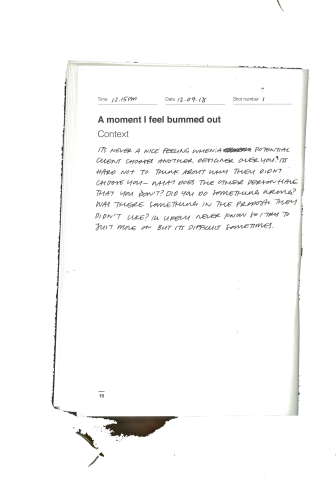 Time 12.15PM Date 12.09.18 Shot number 1
A moment I feel bummed out
Context
ITS NEVER A NICE FEELING WHEN A POTENTIAL
CLIENT CHOOSES ANOTHER DESIGNER OVER YOU. ITS
HARD NOT TO THINK ABOUT WHY THEY DIDN'T
CHOOSE YOU - WHAT DOES THE OTHER PERSON HAVE
THAT YOU DON'T? DID YOU DO SOMETHING WRONG?
WAS THERE SOMETHING IN THE PROPOSAL THEY
DIDN'T LIKE? I'LL LIKELY NEVER KNOW SO I TRY TO
JUST MOVE ON BUT ITS DIFFICULT SOMETIMES.
15